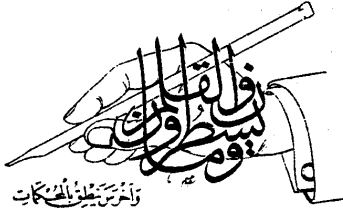 ن والقلم وما يسطرون
وأخرس ينطق بالمحكمات